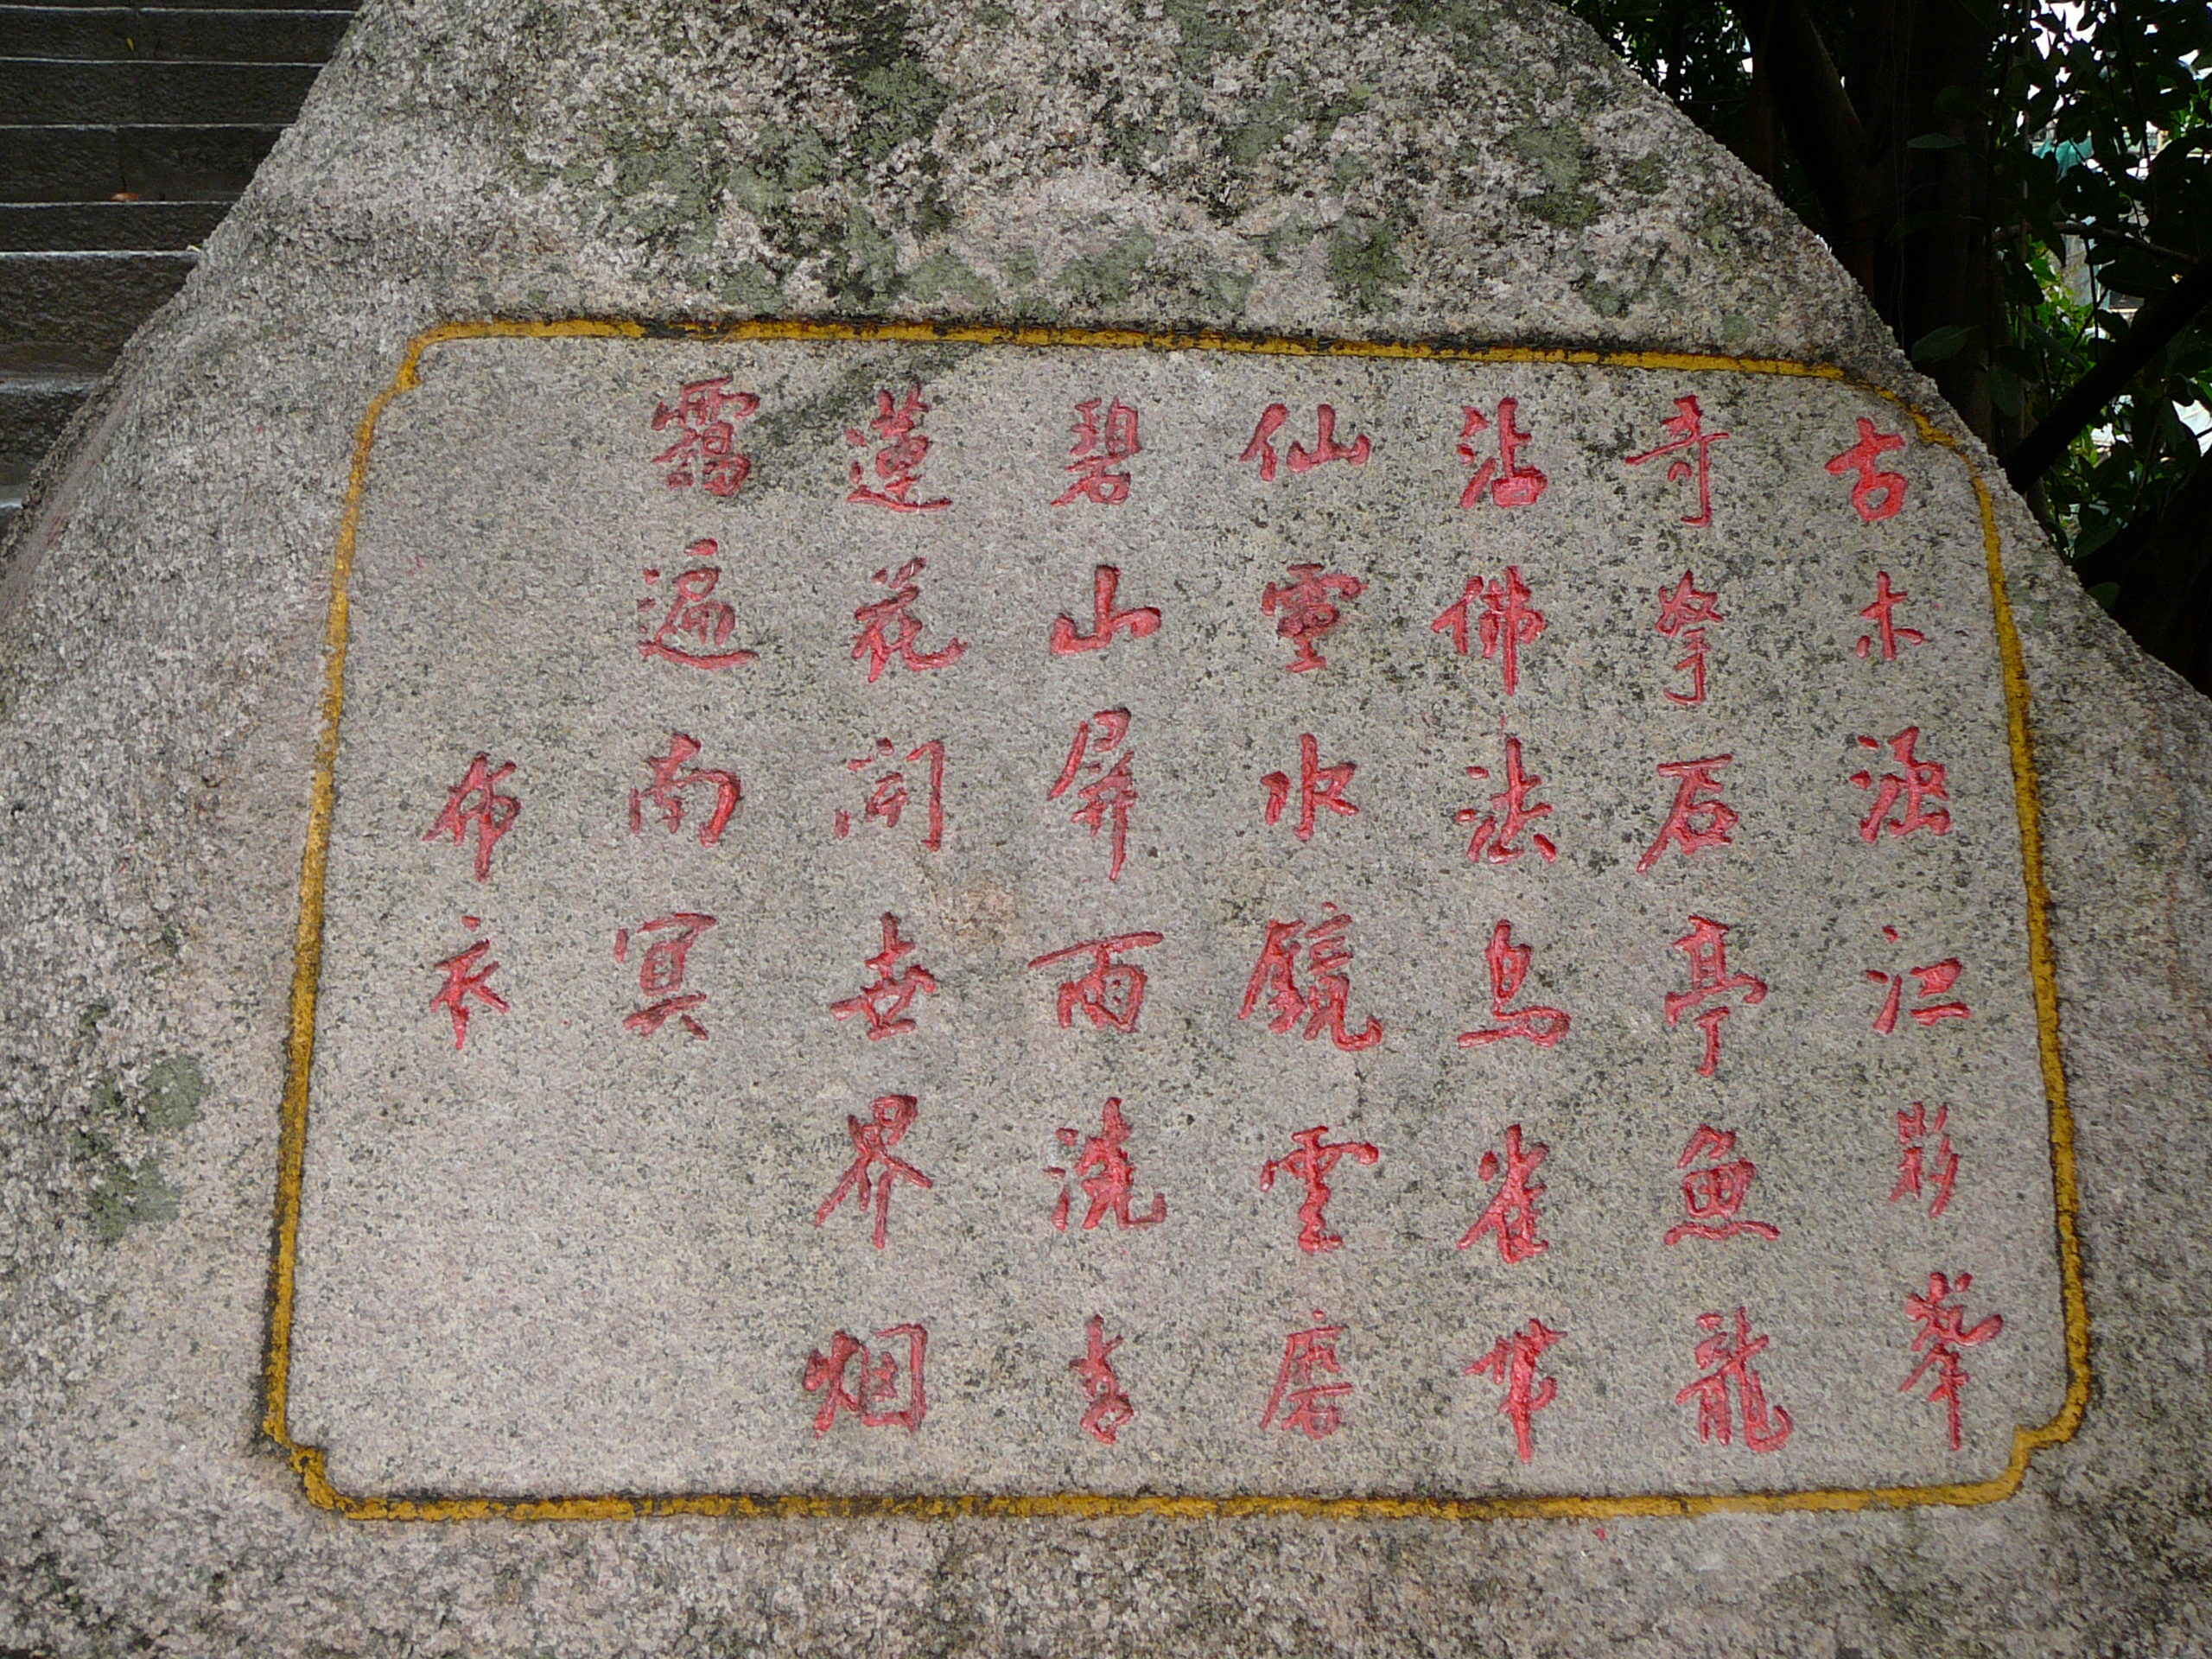 古木涵江影峯
奇拏石亭魚龍
沾佛法鳥雀帶
仙靈水鏡雲磨
碧山屏雨洗青
蓮花開世界烟
靄遍南冥
布衣